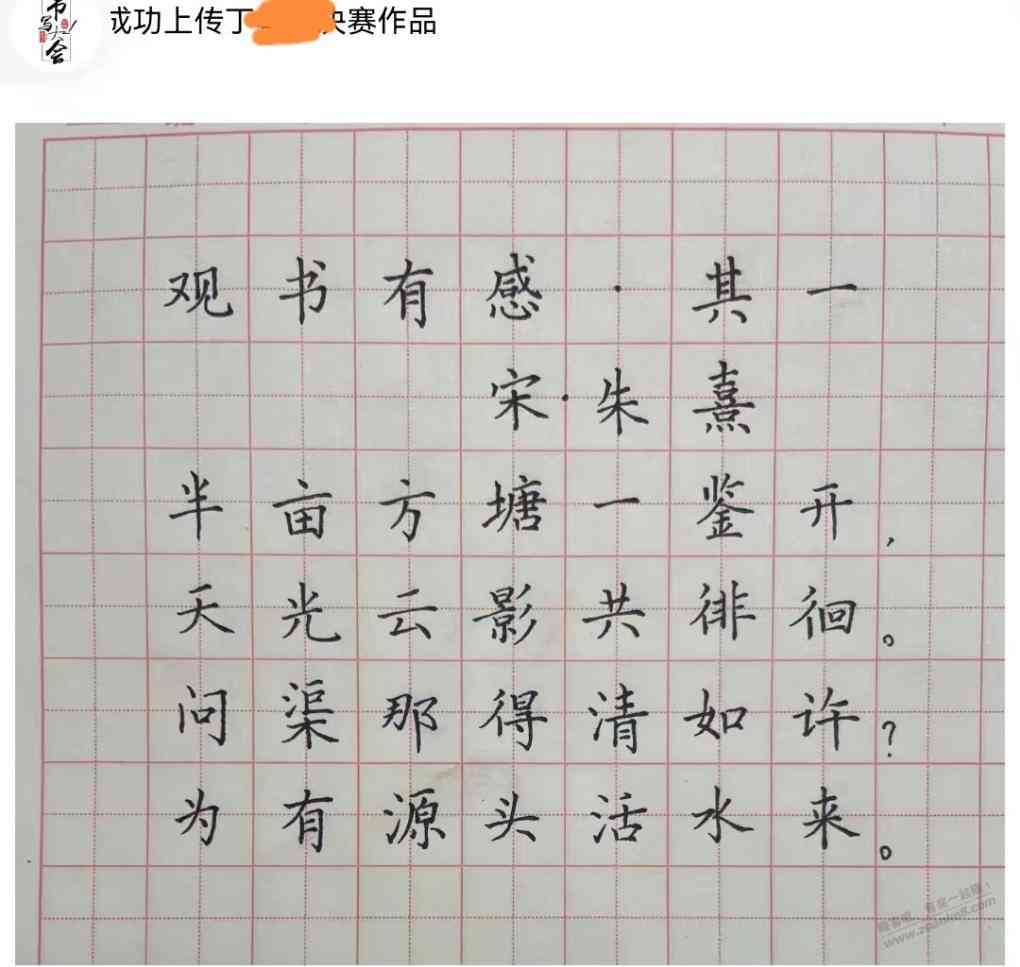 书写大会
成功上传丁 决赛作品
观书有感·其一
宋·朱熹
半亩方塘一鉴开，
天光云影共徘徊。
问渠那得清如许？
为有源头活水来。
www.zuanke8.com